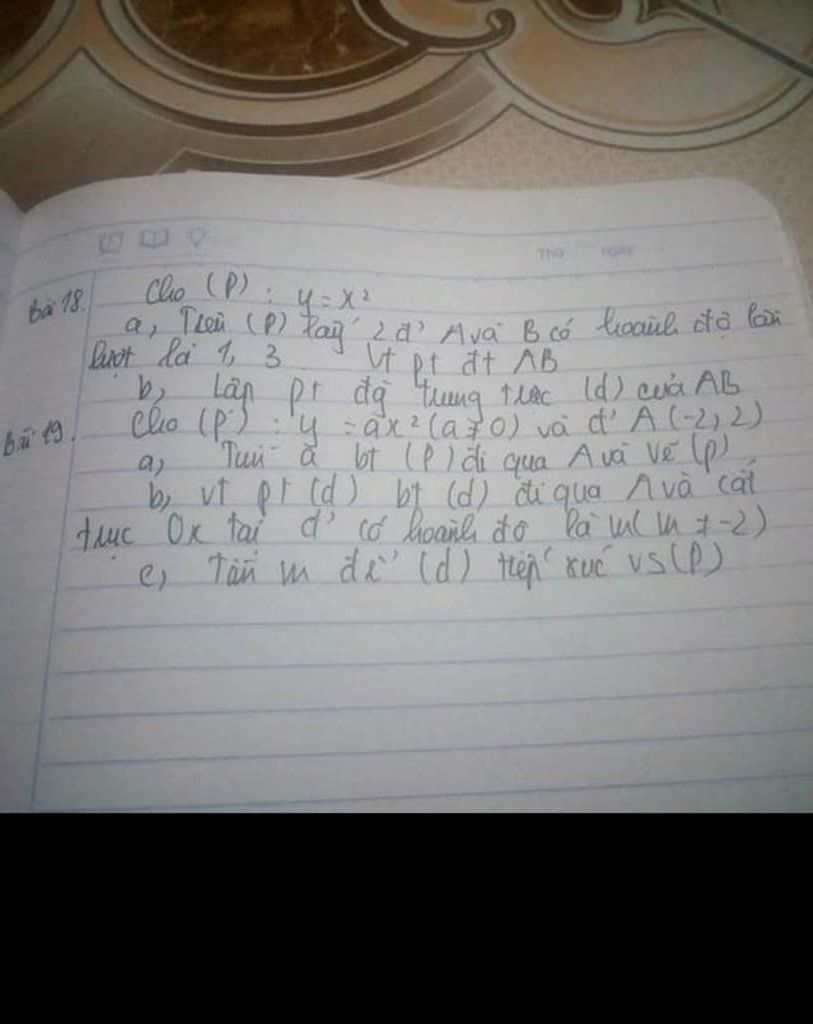 Thứ ngày
Bài 18. Cho (P) : y = x²
a, Trên (P) lấy 2 đ' A và B có hoành độ lần
lượt là 1, 3 Vt pt đt AB
b, Lập pt đg trung trực (d) của AB
Bài 19. Cho (P) : y = ax² (a ≠ 0) và đ' A (-2, 2)
a, Tìm a bt (P) đi qua A và vẽ (p)
b, vt pt (d) bt (d) đi qua A và cắt
trục Ox tại đ' có hoành độ là m( m ≠ -2)
c, Tìm m để (d) tiếp xúc vs (P)